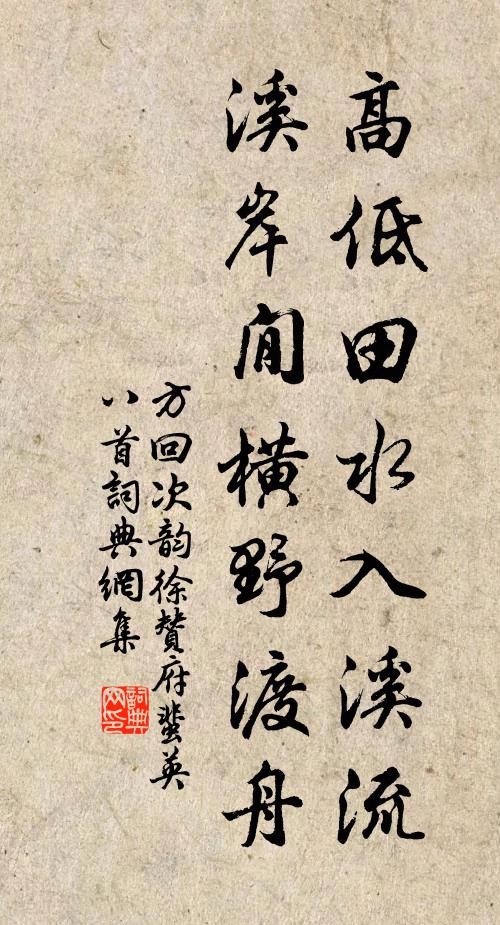 高低田水入溪流
溪岸閒橫野渡舟
方回次韵徐贊府蜚英
八首詞典網集
詞典网印